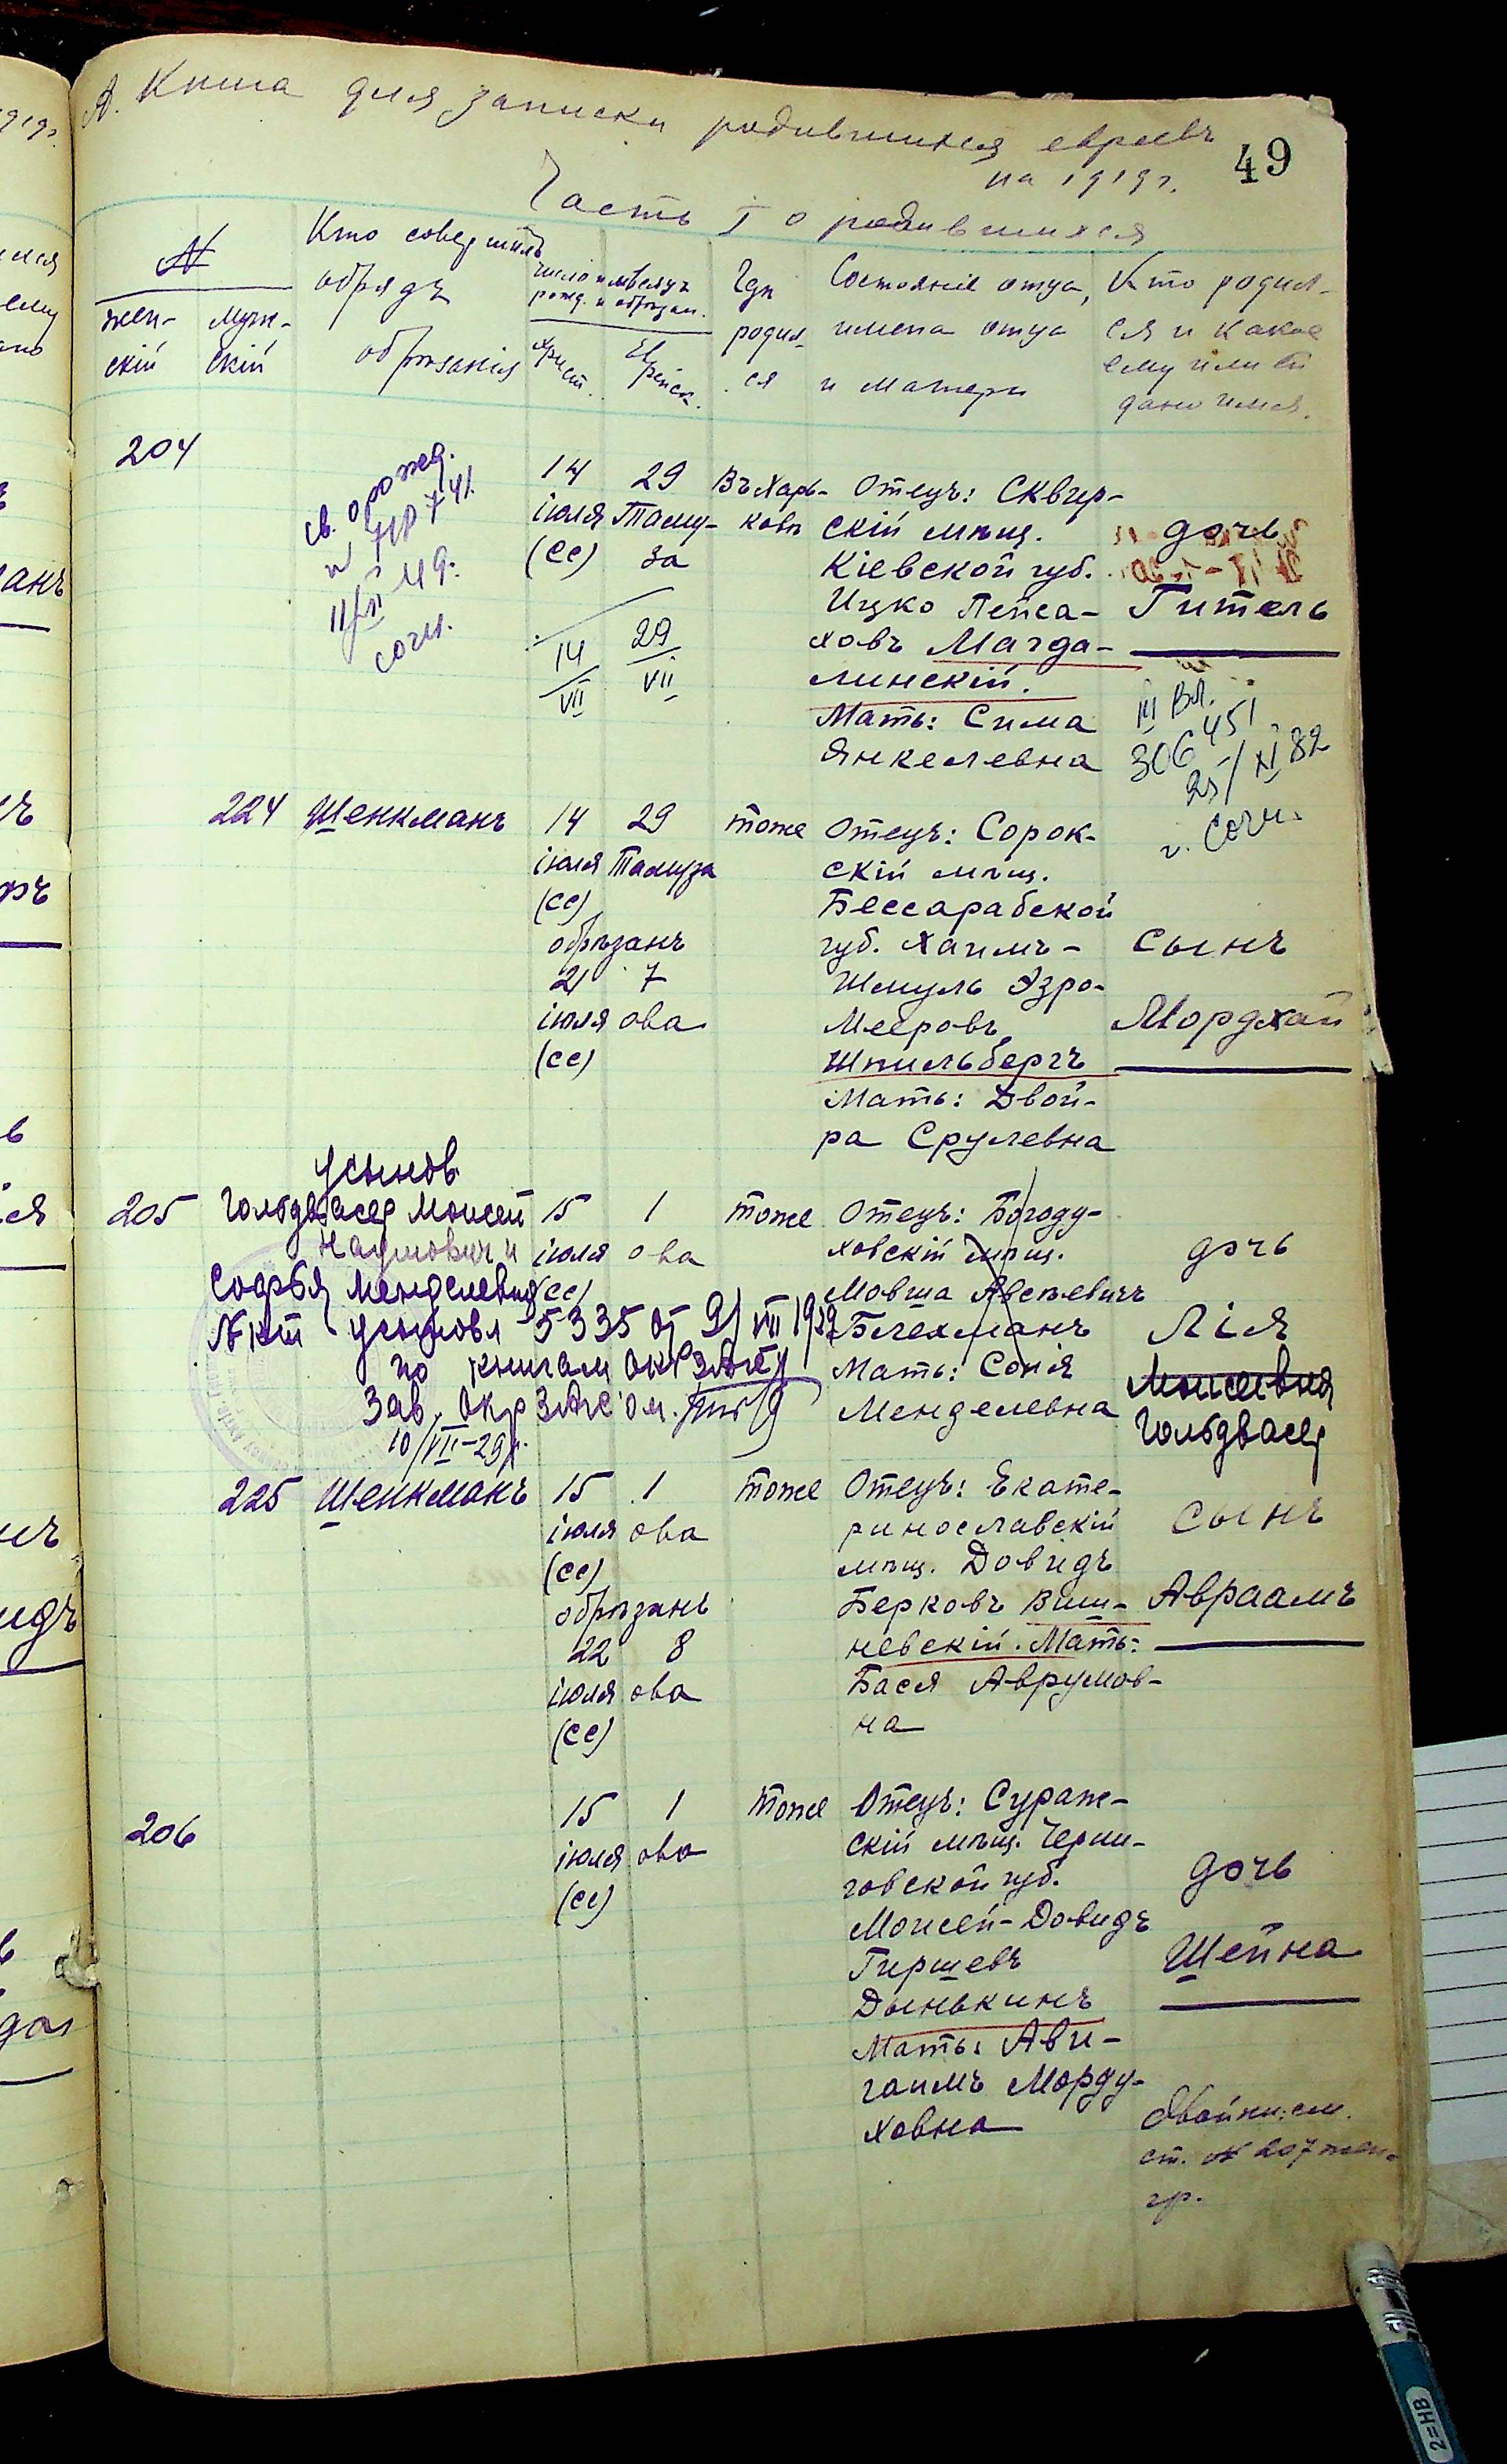 А. Книга для записки родившихся евреевъ
на 1919 г.
49
Часть I о родившихся
№
жен-
скій
муж-
скій
Кто совершилъ
обрядъ
обрѣзанія
число и мѣсяцъ
рожд. и обрѣзан.
христ.
Еврейск.
Гдѣ
родил-
ся
Состояніе отца,
имена отца
и матери
Кто родил-
ся и какое
ему или ей
дано имя.
204
св. о рожд.
сочи.
14 29 Въ Харь-
іюля Таму- ковѣ
(сс) за
14 29
VII VII
Отецъ: Сквир-
скій мѣщ.
Кіевской губ.
Ицко Пейса-
ховъ Магда-
линскій.
Мать: Сима
Янкелевна
дочь
Гитель
III ВЛ.
306451
25/XI 82
г. Сочи.
224 Шенкманъ 14 29 тоже
іюля Тамуза
(сс)
обрѣзанъ
21 7
іюля ова
(сс)
Отецъ: Сорок-
скій мѣщ.
Бессарабской
губ. Хаимъ-
Шмуль Азро-
Мееровъ
Шпильбергъ
Мать: Двой-
ра Срулевна
сынъ
Мордхай
205
усынов.
Гольдвасер Моисей
Наумович и
Софья Менделевна
Акт усыновл 5335 от 9/VII 1929
по книгам Окр ЗАГСу
Зав. Окр ЗАГС'ом.
10/VII-29 г.
15 1 тоже
іюля ова
(сс)
Отецъ: Богоду-
ховскій мѣщ.
Мовша Авсѣевичъ
Блехманъ
Мать: Сонія
Менделевна
дочь
Лія
Моисеевна
Гольдвасер
225 Шенкманъ 15 1 тоже
іюля ова
(сс)
обрѣзанъ
22 8
іюля ова
(сс)
Отецъ: Екате-
ринославскій
мѣщ. Довидъ
Берковъ Виш-
невскій. Мать:
Бася Аврумов-
на
сынъ
Авраамъ
206
15 1 тоже
іюля ова
(сс)
Отецъ: Сураж-
скій мѣщ. Черни-
говской губ.
Моисей-Довидъ
Гиршевъ
Дынькинъ
Мать: Ави-
гаилъ Морду-
ховна
дочь
Шейна
Двойни: см.
ст. № 207 жен.
гр.
2=HB